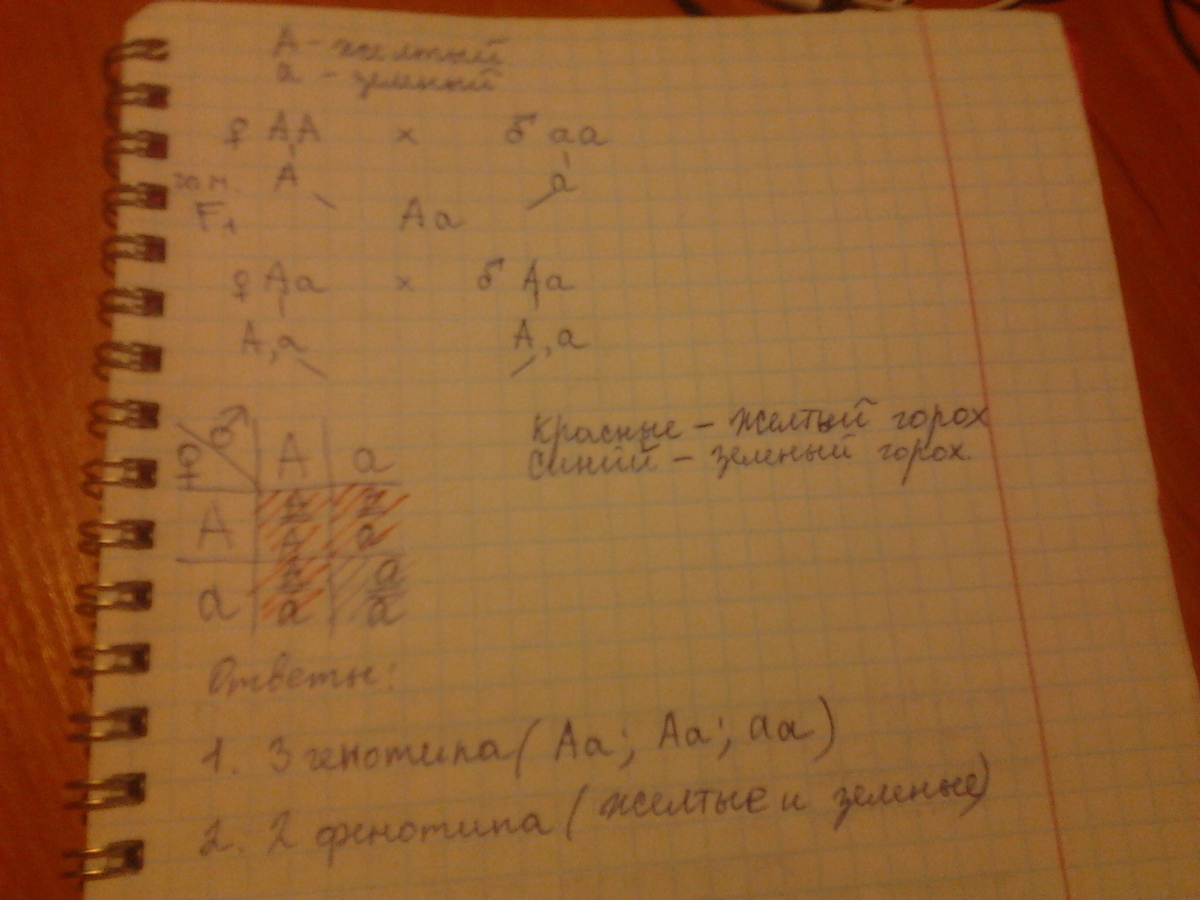 A - желтый
a - зеленый
♀ AA × ♂ aa
гам. A a
F₁ Aa
♀ Aa × ♂ Aa
A, a A, a
♀ ♂ A a
A A A
A a
a A a
a a
Красные - желтый горох
Синий - зеленый горох.
Ответы:
1. 3 генотипа (Aa; Aa; aa)
2. 2 фенотипа (желтые и зеленые)